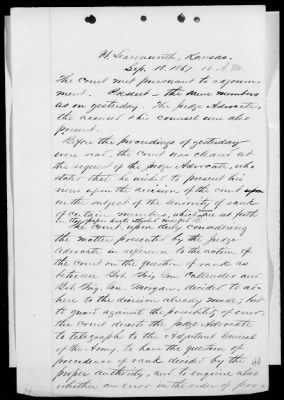 Ft. Leavenworth, Kansas.
Sep. 18. 1867 10 A.M.
The Court met pursuant to adjourn
ment. Present – the same members
as on yesterday. The Judge Advocate,
the accused & his counsel were also
present.
Before the proceedings of yesterday
were read, the Court was cleared at
the request of the Judge Advocate, who
stated that he wished to present his
views upon the decision of the court upon
on the subject of the seniority of rank
of certain members, which are set forth
in the paper hereto attached marked
The Court, upon duly considering
the matter presented by the Judge
Advocate in reference to the action of
the Court on the question of rank as
between Bvt. Brig. Gen. Callender and
Bvt. Brig. Gen. Morgan, decided to ad
here to the decision already made; but
to guard against the possibility of error,
the court direct the Judge Advocate
to telegraph to the Adjutant General
of the Army, to have the question of
precedence of rank decided by the
proper authority, and to enquire also
whether an error in the order of